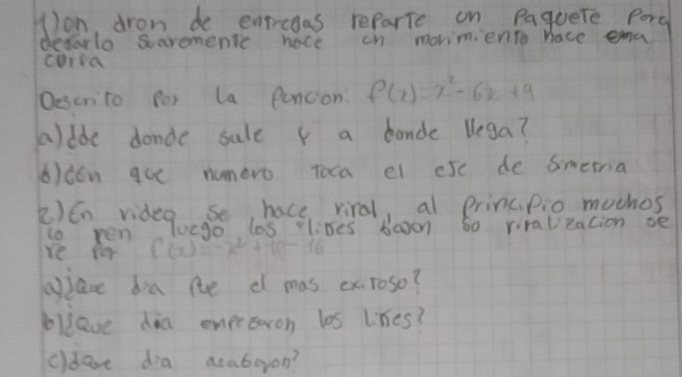 1) on dron de entregas reparte un paquete Para
dejarlo suaremente hace un movimiento hace
corva
Descrito Por la funcion: f(x)=x²-6x+9
a) de donde sale y a donde llega?
b) en que numero Toca el eje de Smetria
2) En video se hace viral, al principio muchos
lo ven luego los likes bajan so viralizacion se
ve por f(x)=-x²+10-16
a) que dia fue el mas exitoso?
b) que dia empezaron los likes?
c) que dia acabaron?